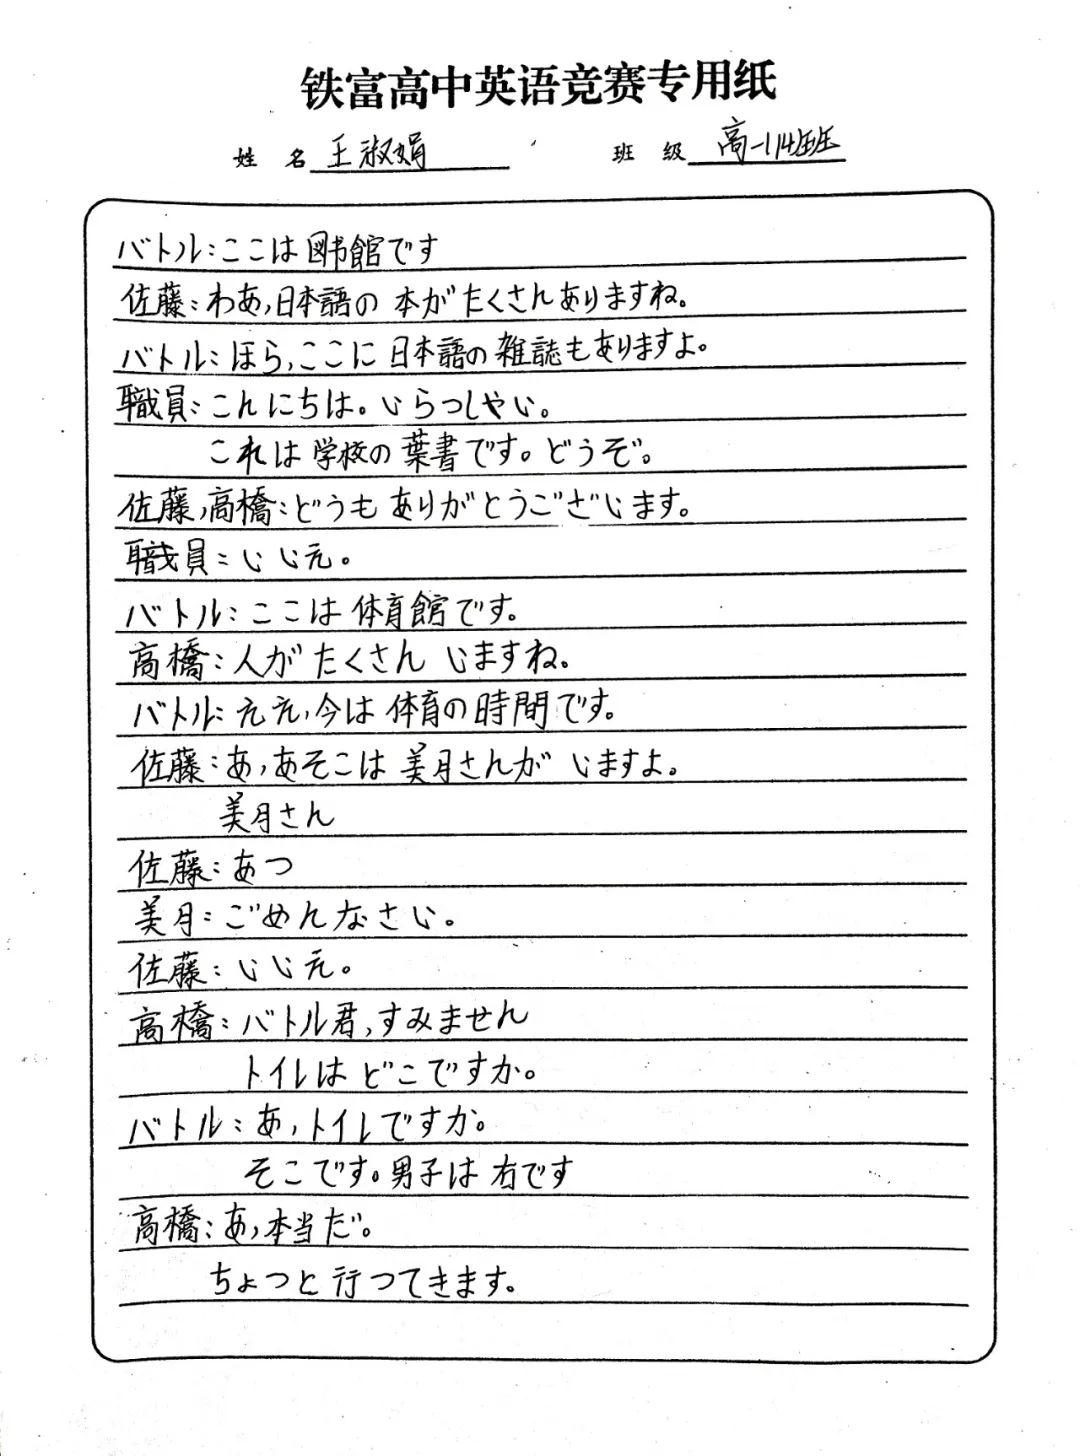 铁富高中英语竞赛专用纸
姓 名 王淑娟 班 级 高一14班
バトル:ここは 図书館です
佐藤:わあ,日本語の 本がたくさんありますね。
バトル:ほら,ここに 日本語の 雑誌もありますよ。
職員:こんにちは。いらつしやい。
これは 学校の 葉書です。どうぞ。
佐藤,高橋:どうも ありがとうございます。
職員:いいえ。
バトル:ここは 体育館です。
高橋:人が たくさん いますね。
バトル:ええ,今は 体育の 時間です。
佐藤:あ,あそこは 美月さんが いますよ。
美月さん
佐藤:あつ
美月:ごめんなさい。
佐藤:いいえ。
高橋:バトル君,すみません
トイレは どこですか。
バトル:あ,トイレですか。
そこです。男子は 右です
高橋:あ,本当だ。
ちょつと 行つてきます。